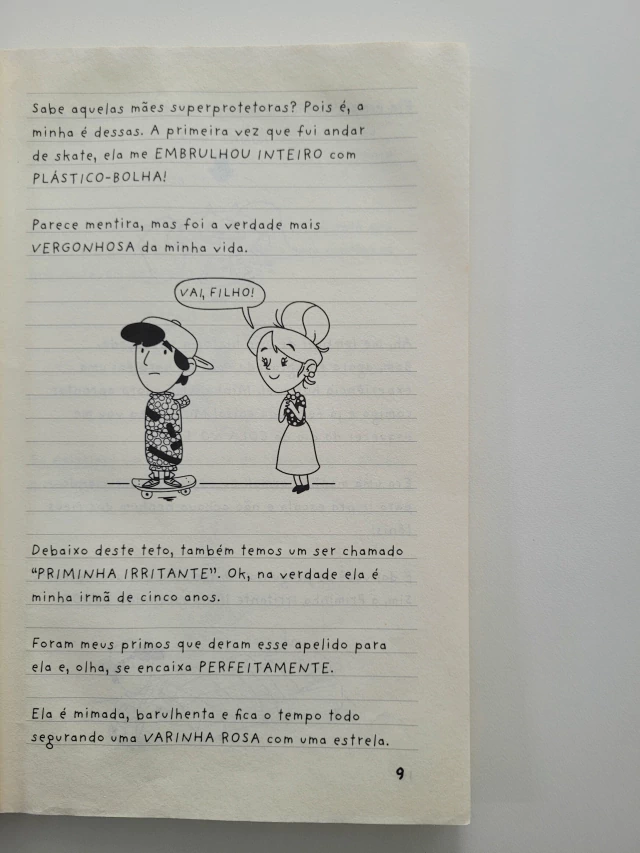 Sabe aquelas mães superprotetoras? Pois é, a
minha é dessas. A primeira vez que fui andar
de skate, ela me EMBRULHOU INTEIRO com
PLÁSTICO-BOLHA!
Parece mentira, mas foi a verdade mais
VERGONHOSA da minha vida.
VAI, FILHO!
Debaixo deste teto, também temos um ser chamado
“PRIMINHA IRRITANTE”. Ok, na verdade ela é
minha irmã de cinco anos.
Foram meus primos que deram esse apelido para
ela e, olha, se encaixa PERFEITAMENTE.
Ela é mimada, barulhenta e fica o tempo todo
segurando uma VARINHA ROSA com uma estrela.
9